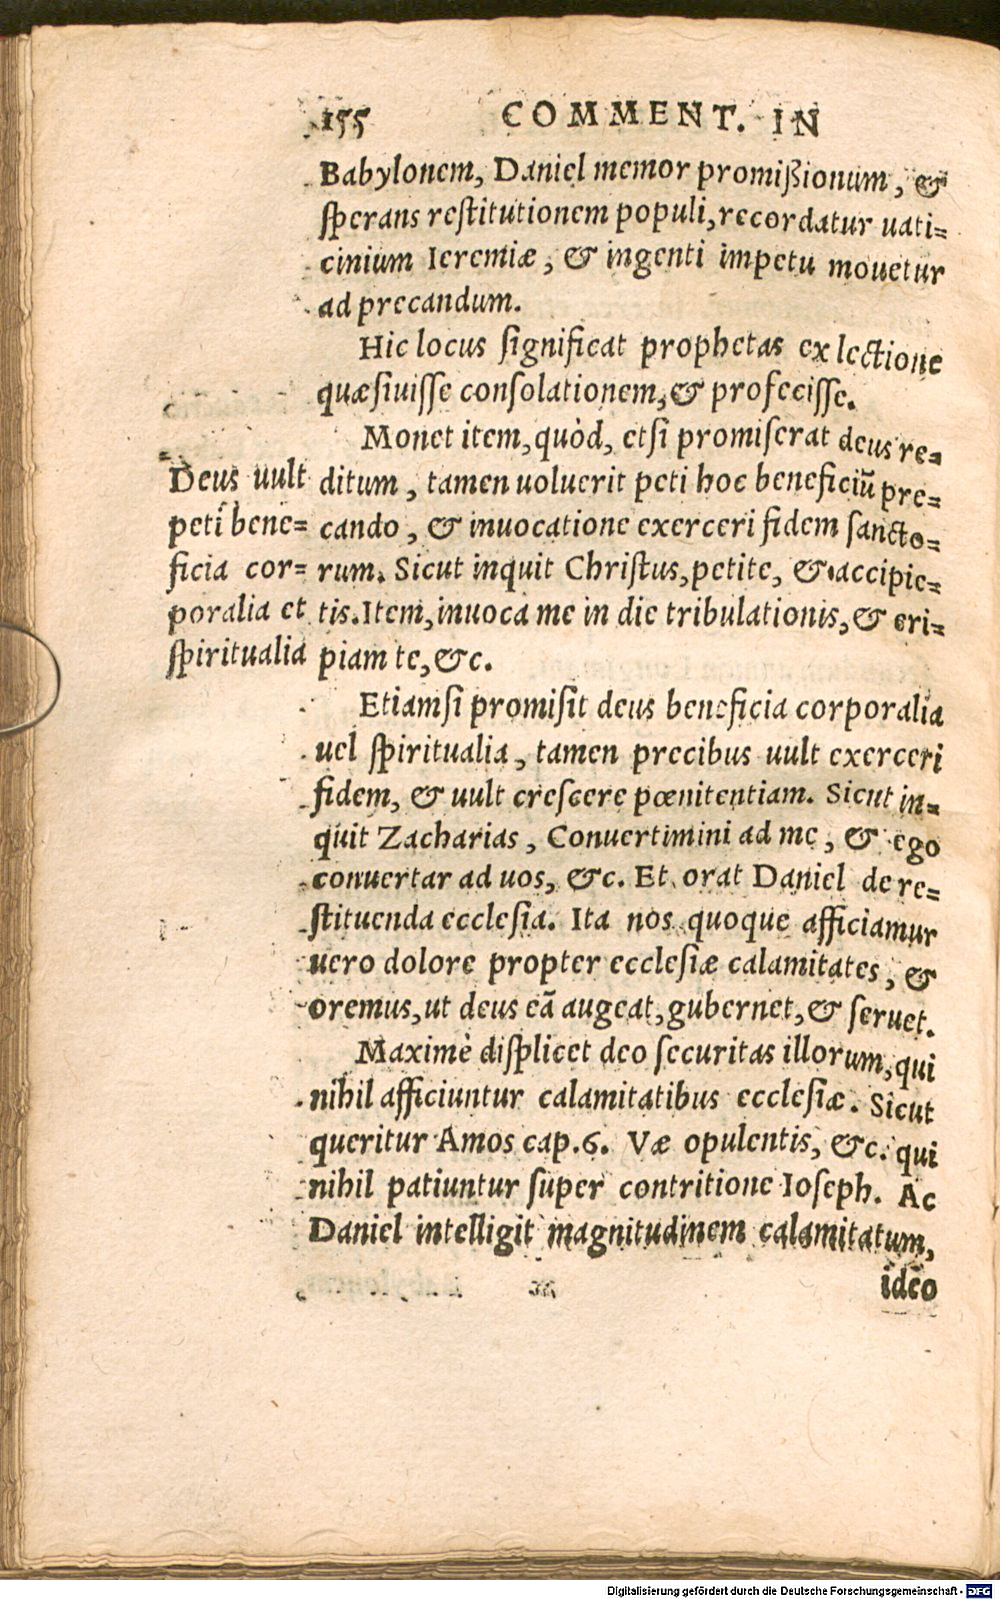 155 COMMENT. IN
Babylonem, Daniel memor promißionum, &
sperans restitutionem populi, recordatur uati=
cinium Ieremiæ, & ingenti impetu mouetur
ad precandum.
Hic locus significat prophetas ex lectione
quæsiuisse consolationem, & profecisse.
Monet item, quòd, etsi promiserat deus re=
ditum, tamen uoluerit peti hoc beneficiũ pre=
cando, & inuocatione exerceri fidem sancto=
rum. Sicut inquit Christus, petite, & accipie=
tis. Item, inuoca me in die tribulationis, & eri=
piam te, &c.
Deus uult
peti bene=
ficia cor=
poralia et
spiritualia
Etiamsi promisit deus beneficia corporalia
uel spiritualia, tamen precibus uult exerceri
fidem, & uult crescere pœnitentiam. Sicut in=
quit Zacharias, Conuertimini ad me, & ego
conuertar ad uos, &c. Et orat Daniel de re=
stituenda ecclesia. Ita nos quoque afficiamur
uero dolore propter ecclesiæ calamitates, &
oremus, ut deus eã augeat, gubernet, & seruet.
Maximè displicet deo securitas illorum, qui
nihil afficiuntur calamitatibus ecclesiæ. Sicut
queritur Amos cap. 6. Væ opulentis, &c. qui
nihil patiuntur super contritione Ioseph. Ac
Daniel intelligit magnitudinem calamitatum,
ideo
Digitalisierung gefördert durch die Deutsche Forschungsgemeinschaft - DFG